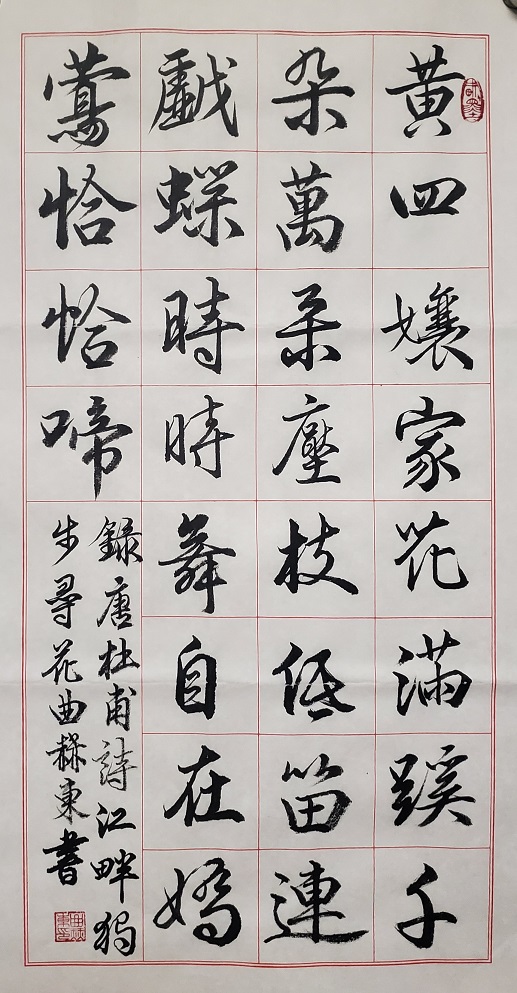 黄四孃家花滿蹊千
朵萬朵壓枝低留連
戲蝶時時舞自在嬌
鶯恰恰啼
錄唐杜甫詩江畔獨
步尋花曲赫東書